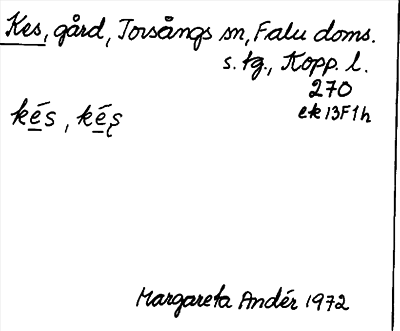 Kes, gård, Torsångs sn, Falu doms.
s. tg., Kopp. l.
270
ek 13F1h
kés, kés̨
Margareta Andér 1972